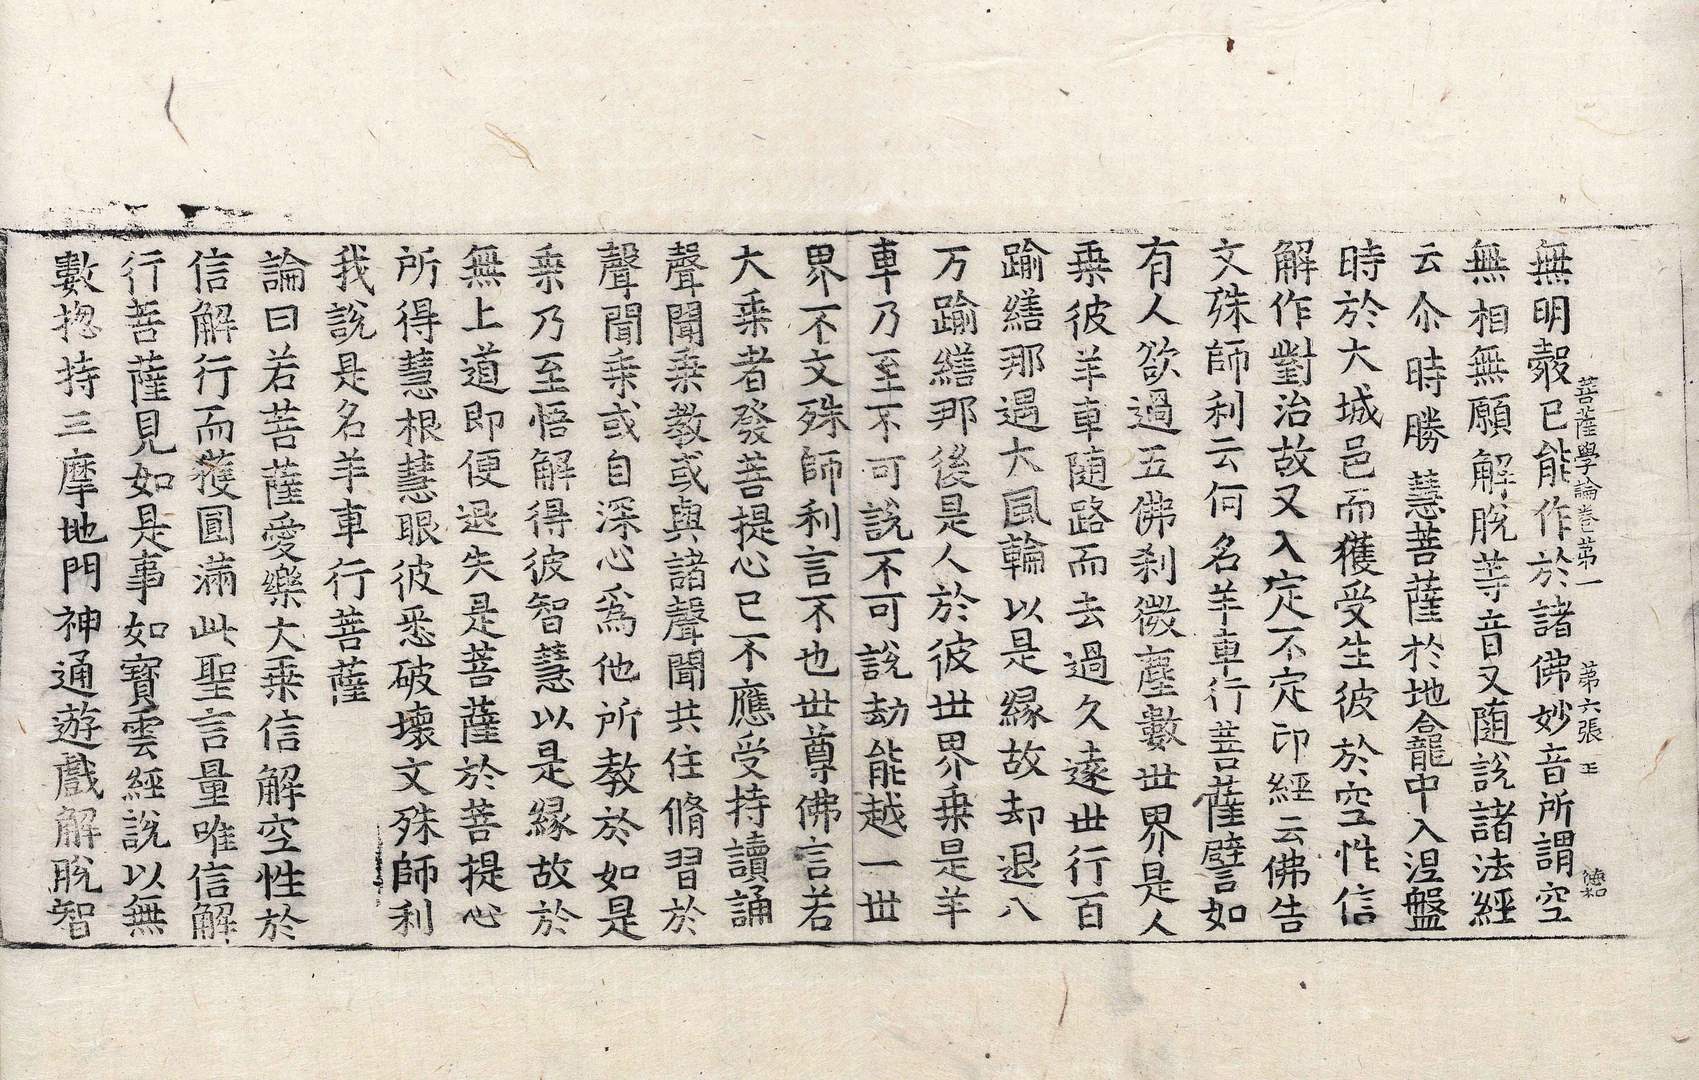 無明㲉已能作於諸佛妙音所謂空
菩薩學論卷第一　第六張　王　德和
無相無願解脫等音又随說諸法經
云尒時勝慧菩薩於地龕中入涅盤
時於大城邑而獲受生彼於空性信
解作對治故又入定不定印經云佛告
文殊師利云何名羊車行菩薩譬如
有人欲過五佛刹微塵數世界是人
乗彼羊車随路而去過久遠世行百
踰繕那遇大風輪以是縁故却退八
万踰繕那後是人於彼世界乗是羊
車乃至不可說不可說劫能越一世
界不文殊師利言不也世尊佛言若
大乗者發菩提心已不應受持讀誦
聲聞乗教或與諸聲聞共住脩習於
聲聞乗或自深心爲他所教於如是
乗乃至悟解得彼智慧以是縁故於
無上道即便退失是菩薩於菩提心
所得慧根慧眼彼悉破壞文殊師利
我說是名羊車行菩薩
論曰若菩薩愛樂大乗信解空性於
信解行而獲圓滿此聖言量唯信解
行菩薩見如是事如寶雲經說以無
數揔持三摩地門神通遊戲解脫智